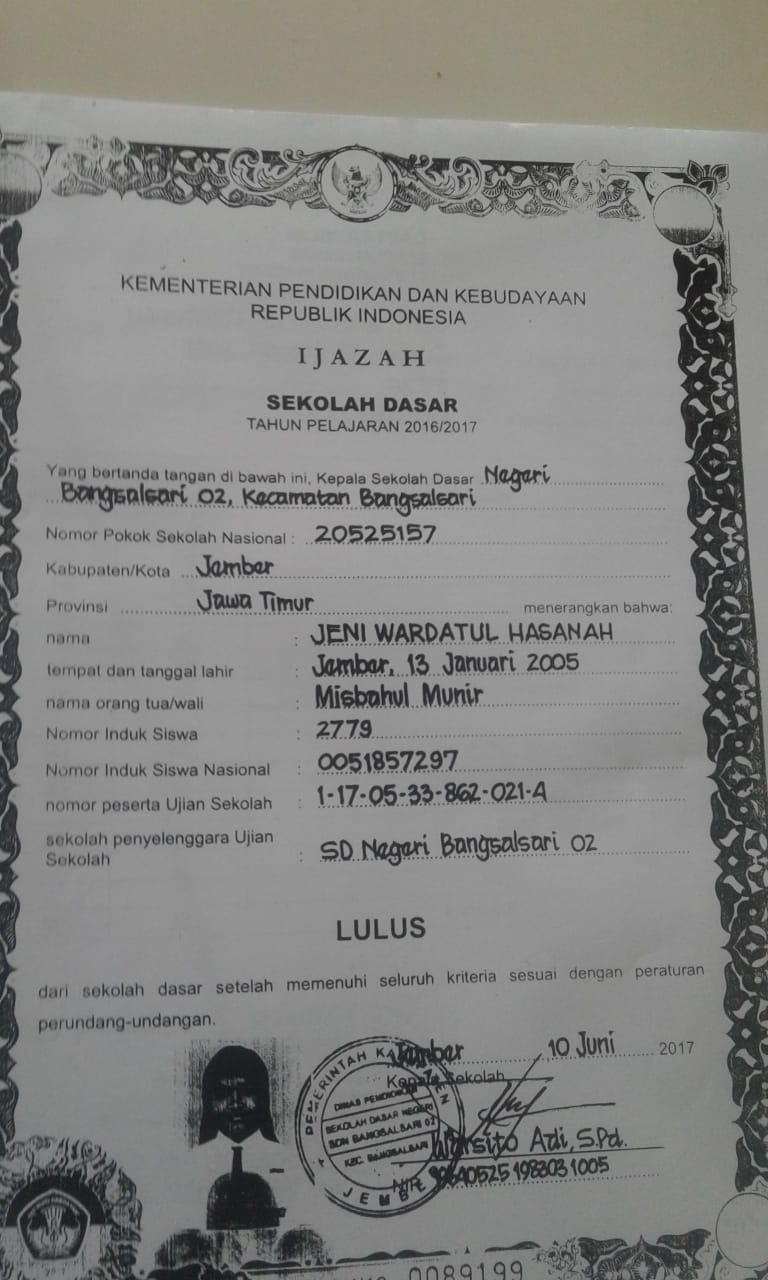 KEMENTERIAN PENDIDIKAN DAN KEBUDAYAAN
REPUBLIK INDONESIA
IJAZAH
SEKOLAH DASAR
TAHUN PELAJARAN 2016/2017
Yang bertanda tangan di bawah ini, Kepala Sekolah Dasar Negeri
Bangsalsari 02, Kecamatan Bangsalsari
Nomor Pokok Sekolah Nasional : 20525157
Kabupaten/Kota Jember
Provinsi Jawa Timur menerangkan bahwa:
nama : JENI WARDATUL HASANAH
tempat dan tanggal lahir : Jember, 13 Januari 2005
nama orang tua/wali : Misbahul Munir
Nomor Induk Siswa : 2779
Nomor Induk Siswa Nasional : 0051857297
nomor peserta Ujian Sekolah : 1-17-05-33-862-021-A
sekolah penyelenggara Ujian
Sekolah : SD Negeri Bangsalsari 02
LULUS
dari sekolah dasar setelah memenuhi seluruh kriteria sesuai dengan peraturan
perundang-undangan.
Jember 10 Juni 2017
Kepala Sekolah
PEMERINTAH
DINAS PENDIDIKAN
SEKOLAH DASAR NEGERI
SDN BANGSALSARI 02
KEC. BANGSALSARI
JEMBER
Warsito Adi, S.Pd.
NIP 198303 1005
0089199